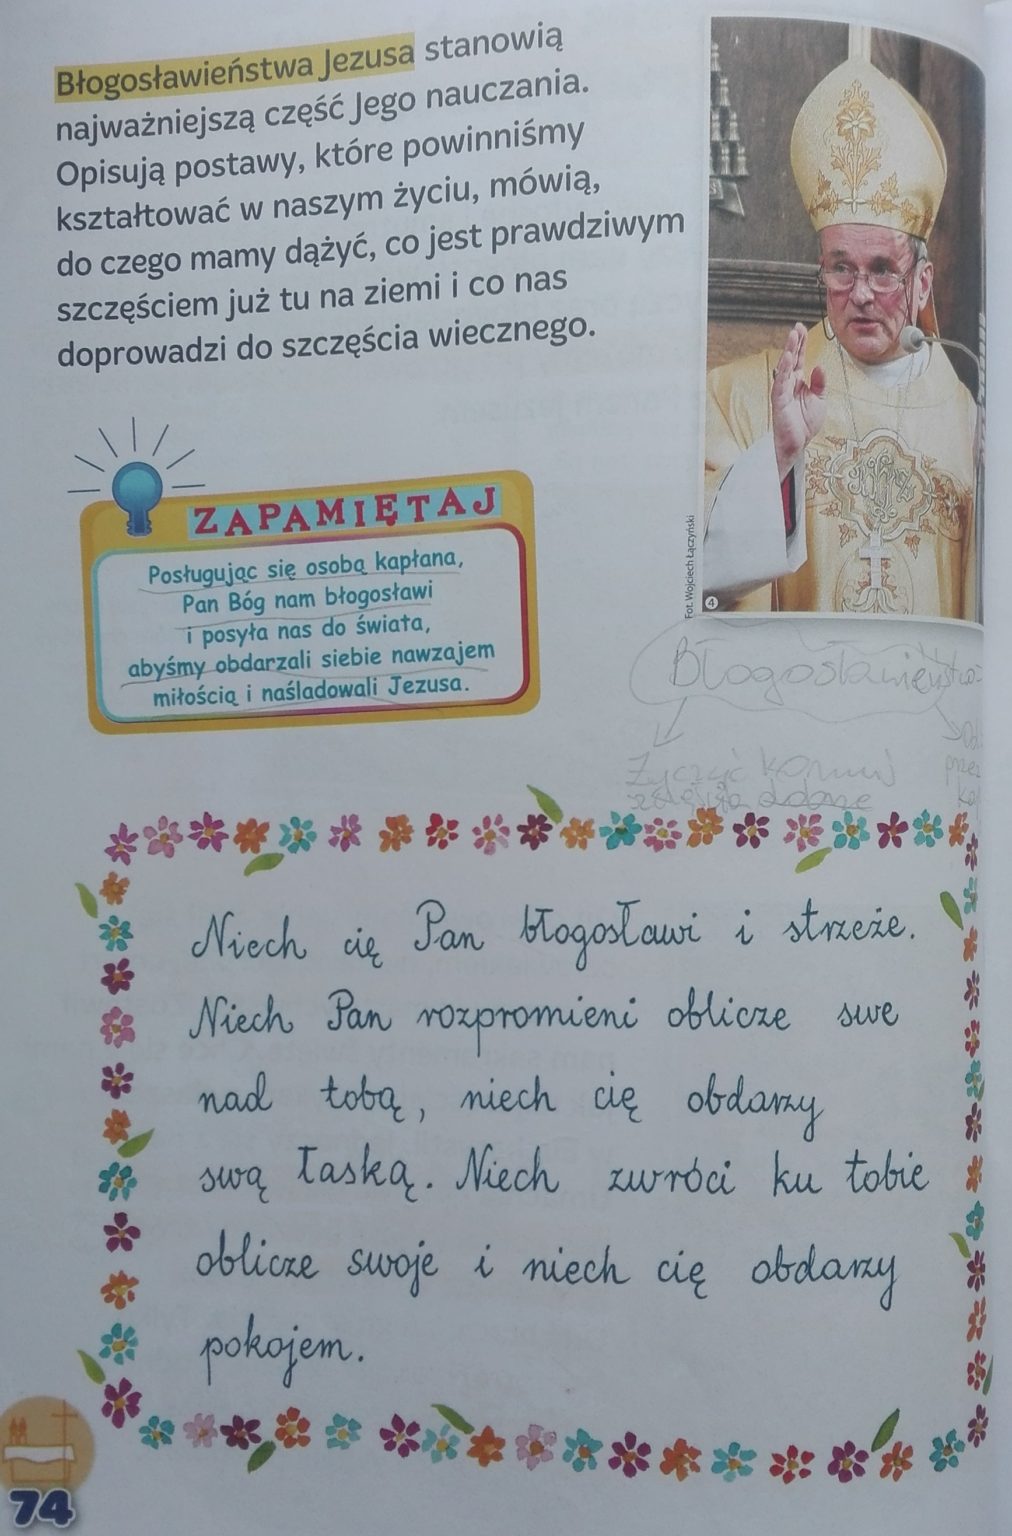 Błogosławieństwa Jezusa stanowią
najważniejszą część Jego nauczania.
Opisują postawy, które powinniśmy
kształtować w naszym życiu, mówią,
do czego mamy dążyć, co jest prawdziwym
szczęściem już tu na ziemi i co nas
doprowadzi do szczęścia wiecznego.
Fot. Wojciech Łączyński
4
ZAPAMIĘTAJ
Posługując się osobą kapłana,
Pan Bóg nam błogosławi
i posyła nas do świata,
abyśmy obdarzali siebie nawzajem
miłością i naśladowali Jezusa.
Błogosławieństwo
Życzyć komuś
Niech cię Pan błogosławi i strzeże.
Niech Pan rozpromieni oblicze swe
nad tobą, niech cię obdarzy
swą łaską. Niech zwróci ku tobie
oblicze swoje i niech cię obdarzy
pokojem.
74